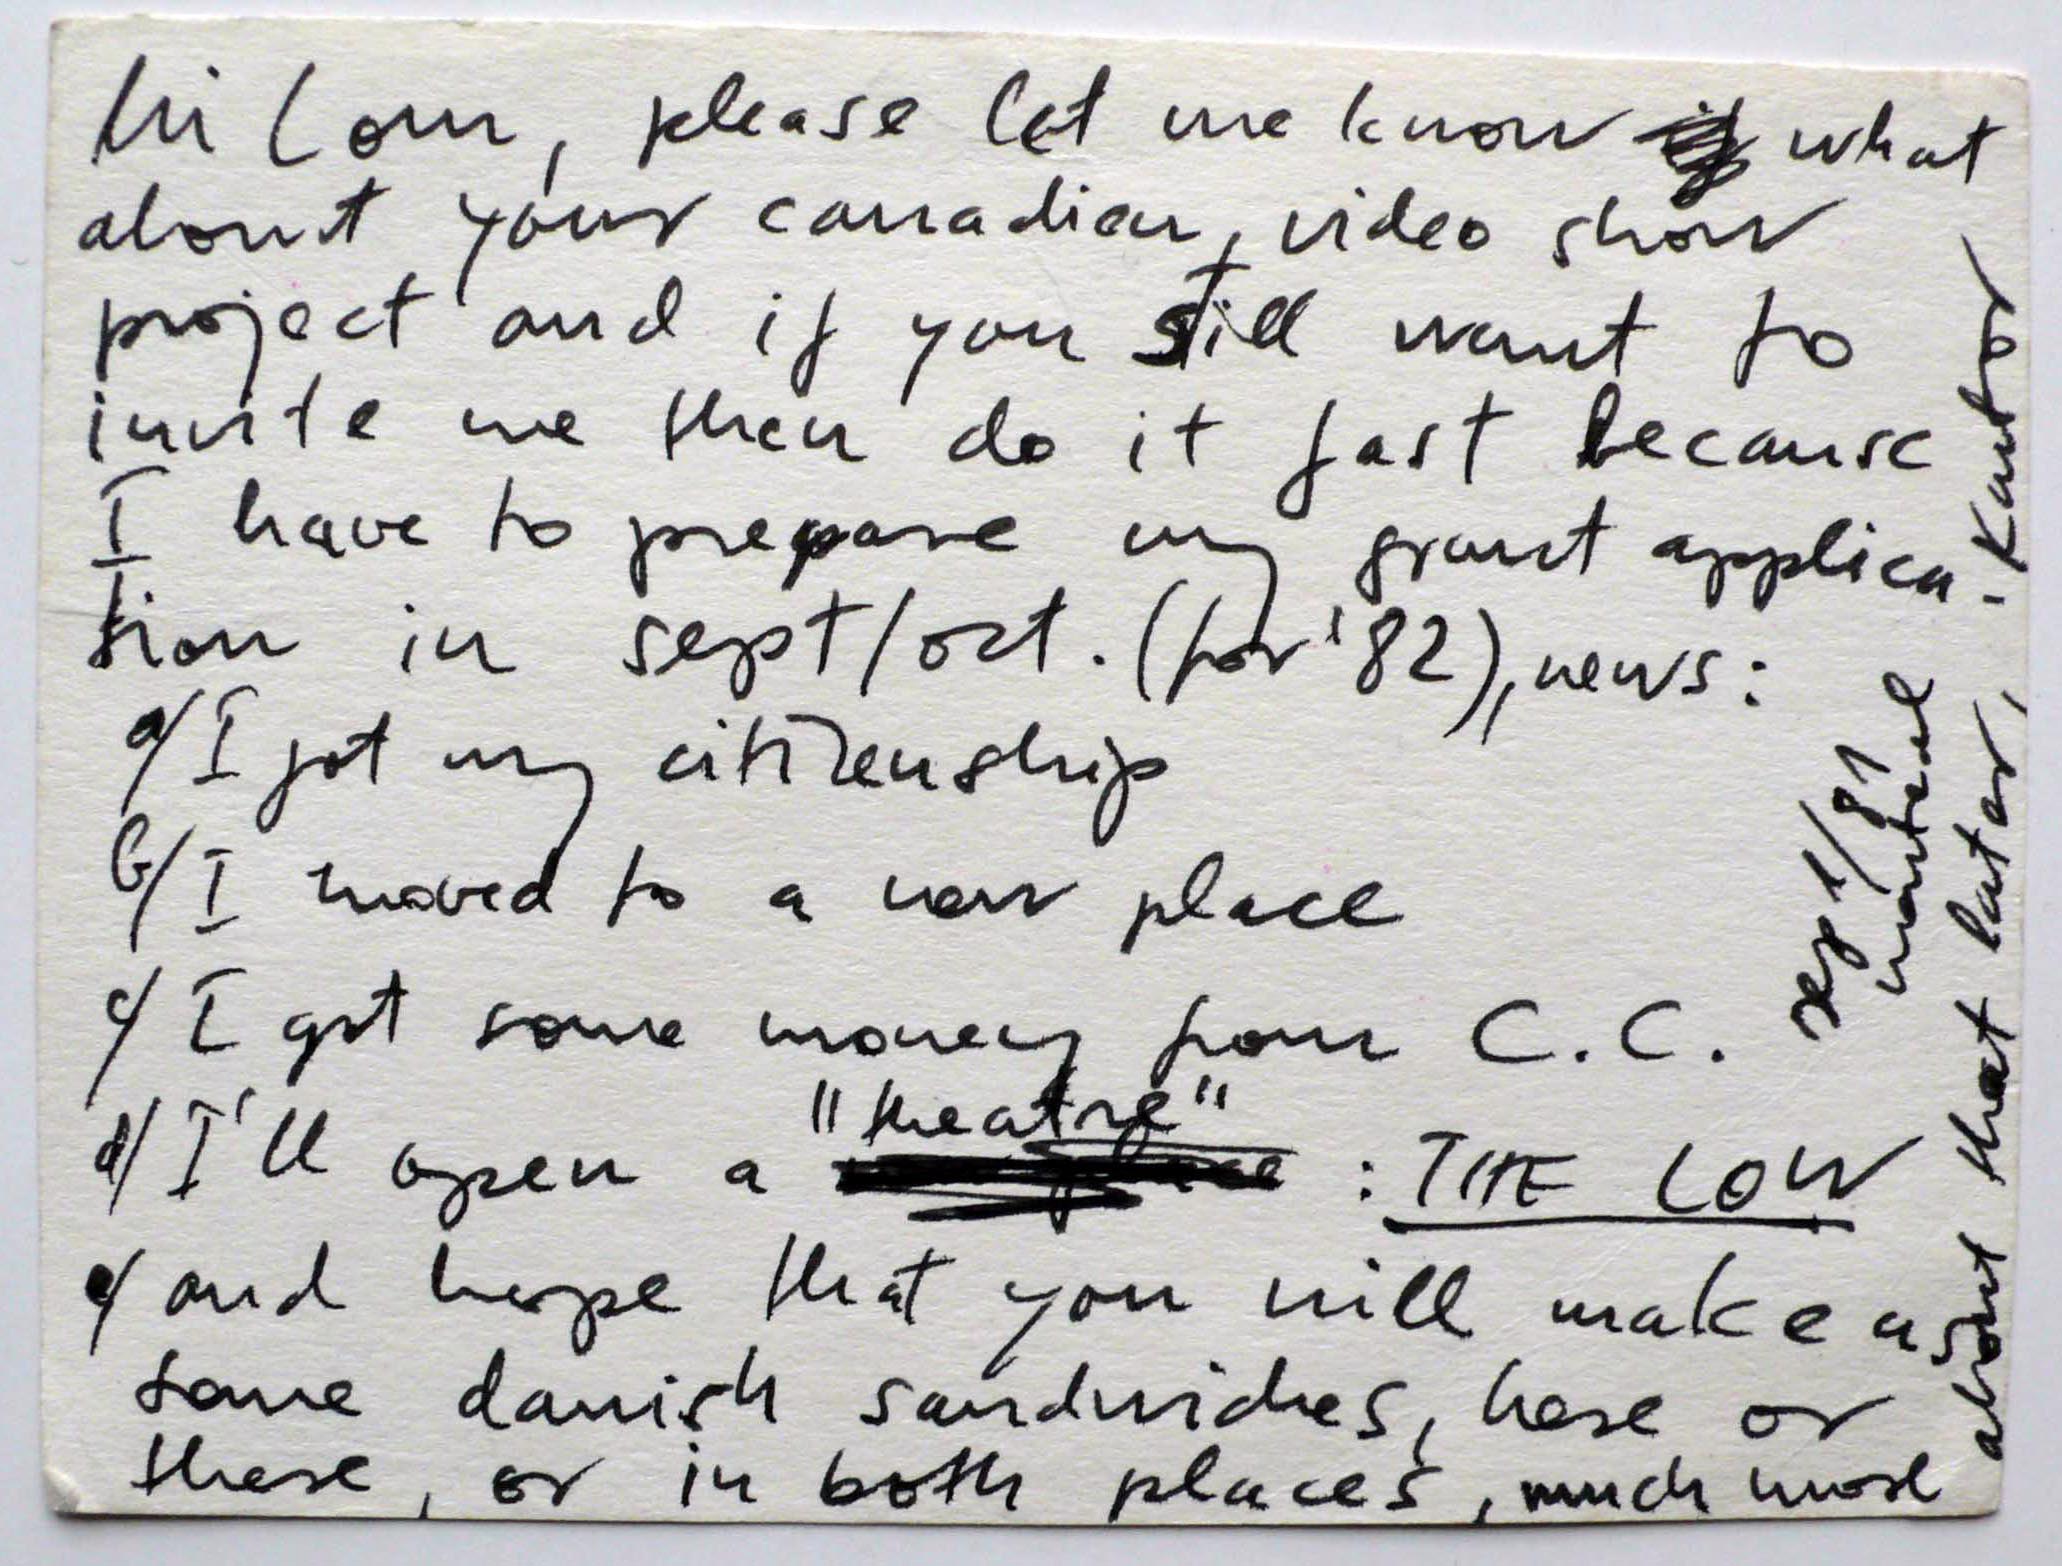 hi Lom, please let me know what
about your canadien, video show
project and if you still want to
invite me then do it fast because
I have to prepare my grant applica
tion in sept/oct. (for '82), news:
a/ I got my citizenship
b/ I moved to a new place
c/ I got some money from C.C.
d/ I'll open a "theatre" : THE LOW
e/ and hope that you will make us
some danish sandwiches, here or
there, or in both places, much more
about that later, . Kantor
sept/81
montreal